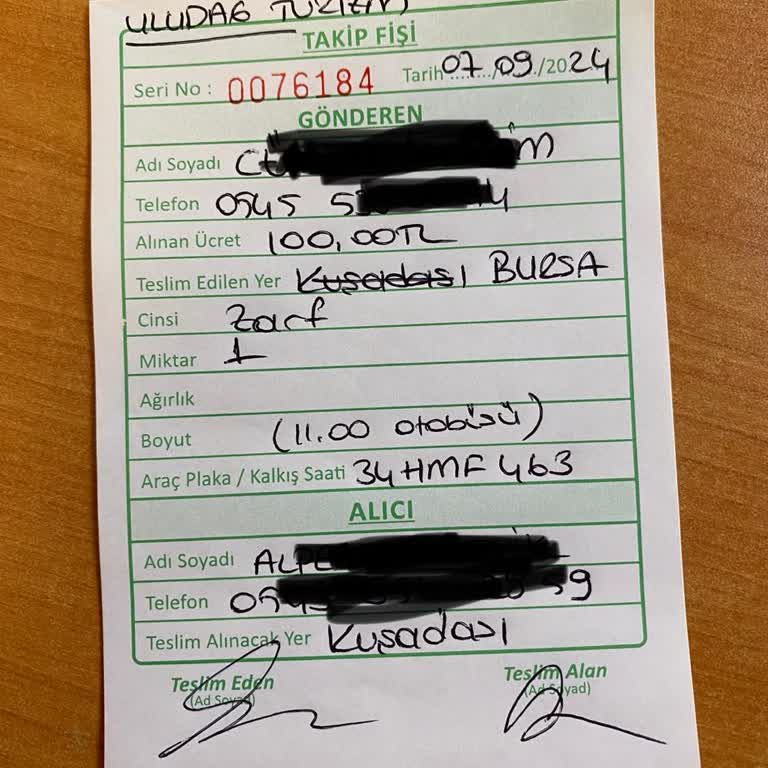 ULUDAĞ TURİZM
TAKİP FİŞİ
Seri No : 0076184 Tarih 07/09/2024
GÖNDEREN
Adı Soyadı
Telefon 0545 5
Alınan Ücret 100,00TL
Teslim Edilen Yer Kuşadası BURSA
Cinsi Zarf
Miktar 1
Ağırlık
Boyut (11.00 otobüsü)
Araç Plaka / Kalkış Saati 34 HMF 463
ALICI
Adı Soyadı ALPE
Telefon 0545 59
Teslim Alınacak Yer Kuşadası
Teslim Eden Teslim Alan
(Ad Soyad) (Ad Soyad)